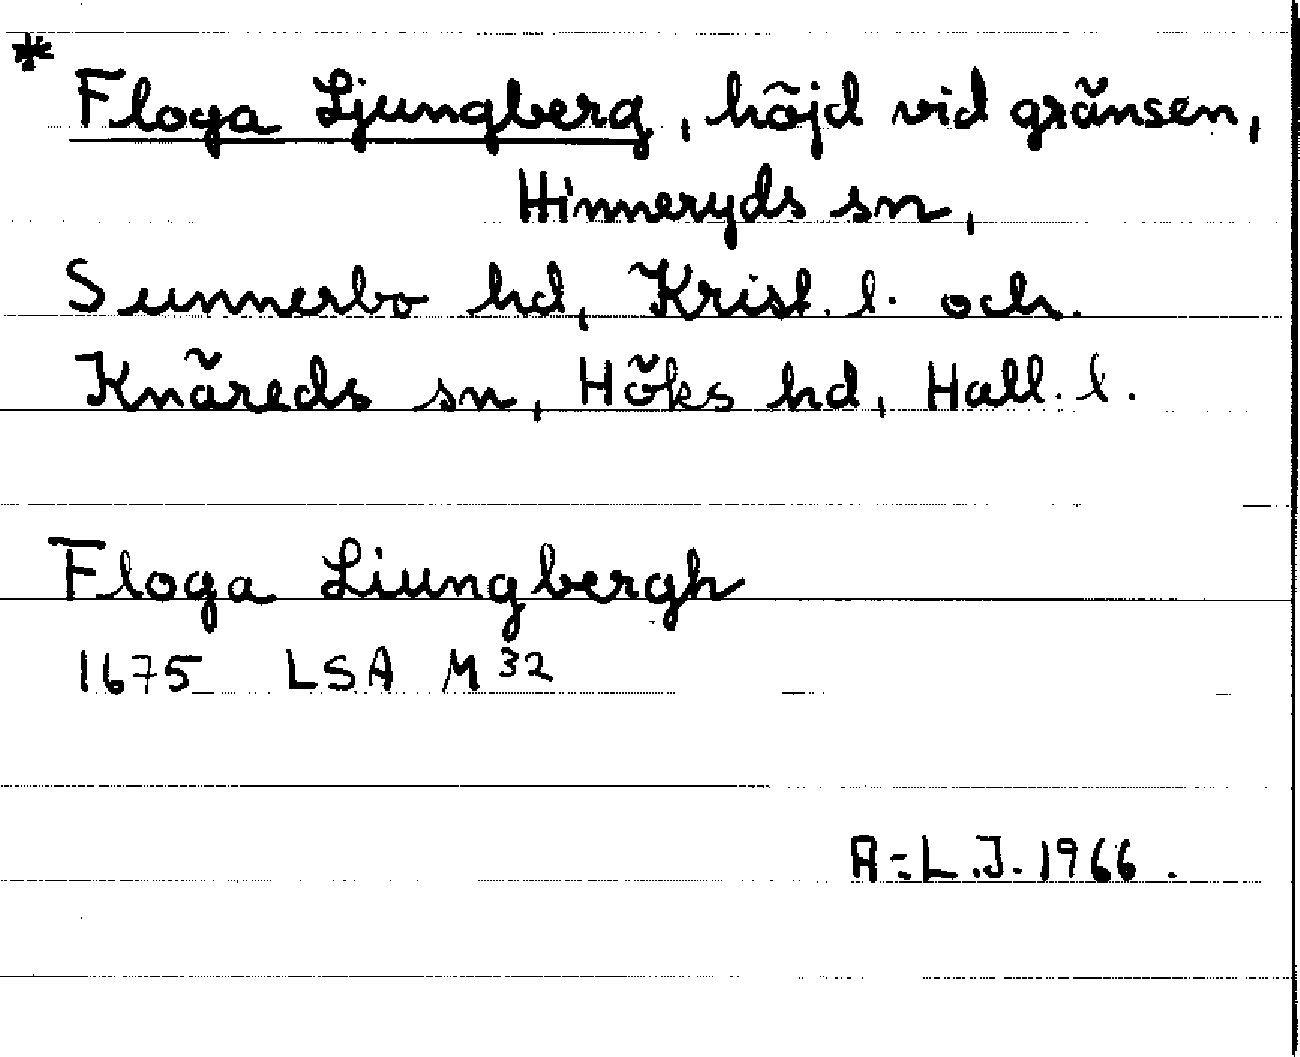 * Floga Ljungberg, höjd vid gränsen,
Hinneryds sn,
Sunnerbo hd, Krist. l. och
Knäreds sn, Höks hd, Hall. l.
Floga Liungbergh
1675 LSA M 32
A-L.J. 1966.